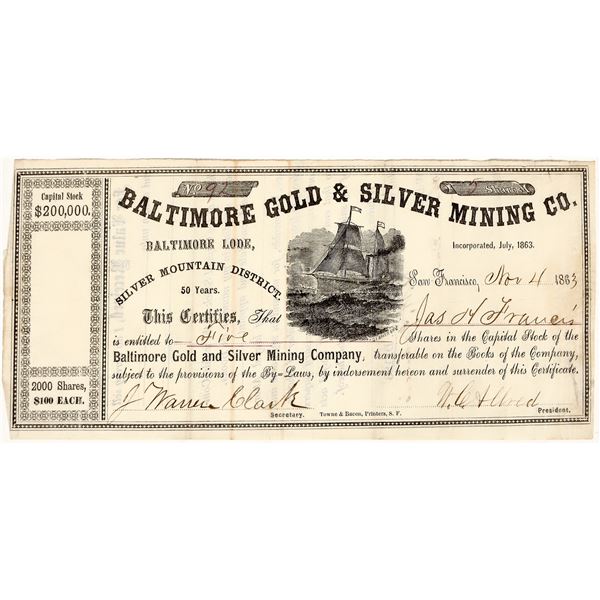 Capital Stock
$200,000.
2000 Shares,
$100 EACH.
No 92
5 Shares
BALTIMORE GOLD & SILVER MINING CO.
BALTIMORE LODE,
SILVER MOUNTAIN DISTRICT.
50 Years.
Incorporated, July, 1863.
San Francisco, Nov 4 1863
This Certifies, That Jas H Francis
is entitled to Five Shares in the Capital Stock of the
Baltimore Gold and Silver Mining Company, transferable on the Books of the Company,
subject to the provisions of the By=Laws, by endorsement hereon and surrender of this Certificate.
J Warren Clark
Secretary.
Towne & Bacon, Printers, S. F.
President.